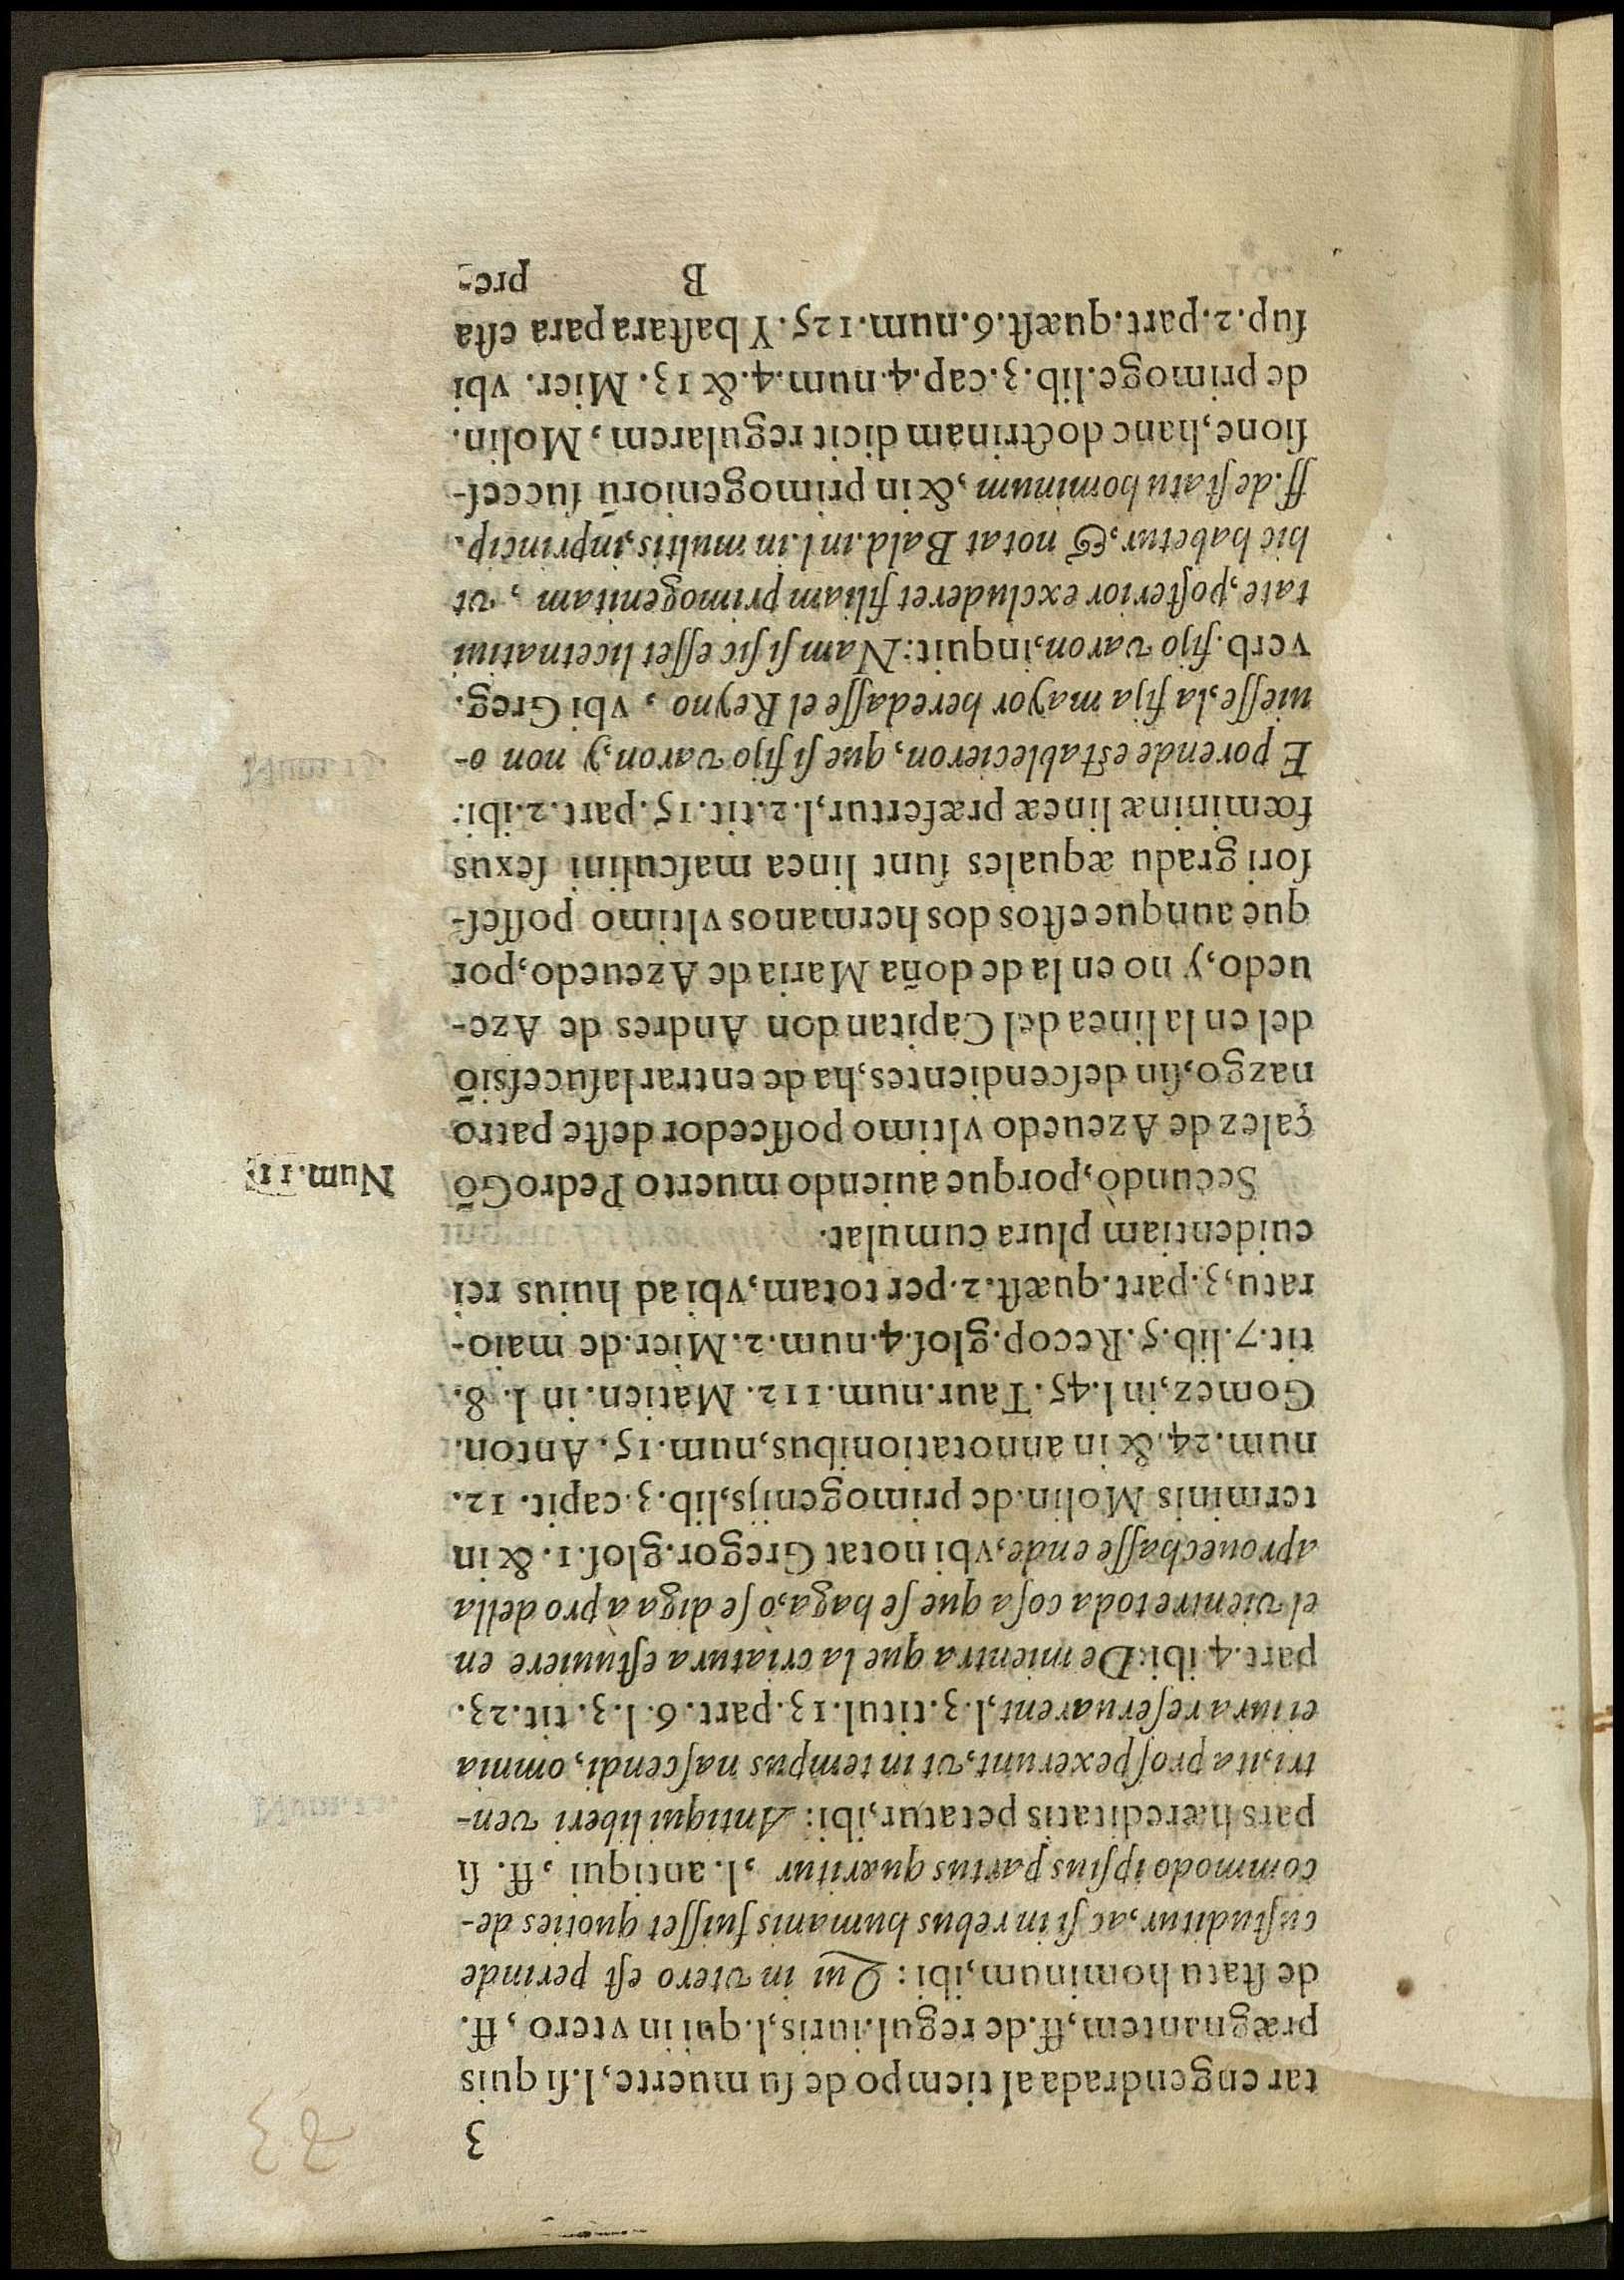 3
tar engendrada al tiempo de ſu muerte, l. ſi quis
prægnantem, ff. de regul. iuris, l. qui in vtero, ff.
de ſtatu hominum, ibi: Qui in vtero eſt perinde
cuſtuditur, ac ſi in rebus humanis fuiſſet quoties de-
commodo ipſius partus quæritur, l. antiqui, ff. ſi
pars hæreditatis petatur, ibi: Antiqui liberi ven-
tri, ita proſpexerunt, vt in tempus naſcendi, omnia
ei iura reſeruarent, l. 3. titul. 13. part. 6. l. 3. tit. 23.
part. 4. ibi: De mientra que la criatura eſtuuiere en
el vientre toda coſa que ſe haga, ò ſe diga à pro della
aprouechaſſe ende, vbi notat Gregor. gloſ. 1. & in
terminis Molin. de primogenijs, lib. 3. capit. 12.
num. 24. & in annotationibus, num. 15. Anton.
Gomez, in l. 45. Taur. num. 112. Matien. in l. 8.
tit. 7. lib. 5. Recop. gloſ. 4. num. 2. Mier. de maio-
ratu, 3. part. quæſt. 2. per totam, vbi ad huius rei
euidentiam plura cumulat.
Secundò, porque auiendo muerto Pedro Gõ
Num. 11.
çalez de Azeuedo vltimo poſſeedor deſte patro
nazgo, ſin deſcendientes, ha de entrar la ſuceſsiõ
del en la linea del Capitan don Andres de Aze-
uedo, y no en la de doña Maria de Azeuedo, por
que aunque eſtos dos hermanos vltimo poſſeſ-
ſori gradu æquales ſunt linea maſculini ſexus
fœmininæ lineæ præfertur, l. 2. tit. 15. part. 2. ibi:
E porende eſtablecieron, que ſi fijo varon, y non o-
uieſſe, la fija mayor heredaſſe el Reyno, vbi Greg.
verb. fijo varon, inquit: Nam ſi ſic eſſet licet natiui
tate, poſterior excluderet filiam primogenitam, vt
hic habetur, & notat Bald. in l. in multis, in princip.
ff. de ſtatu hominum, & in primogeniorũ ſucceſ-
ſione, hanc doctrinam dicit regularem, Molin.
de primoge. lib. 3. cap. 4. num. 4. & 13. Mier. vbi
ſup. 2. part. quæſt. 6. num. 125. Y baſtara para eſta
B pre-